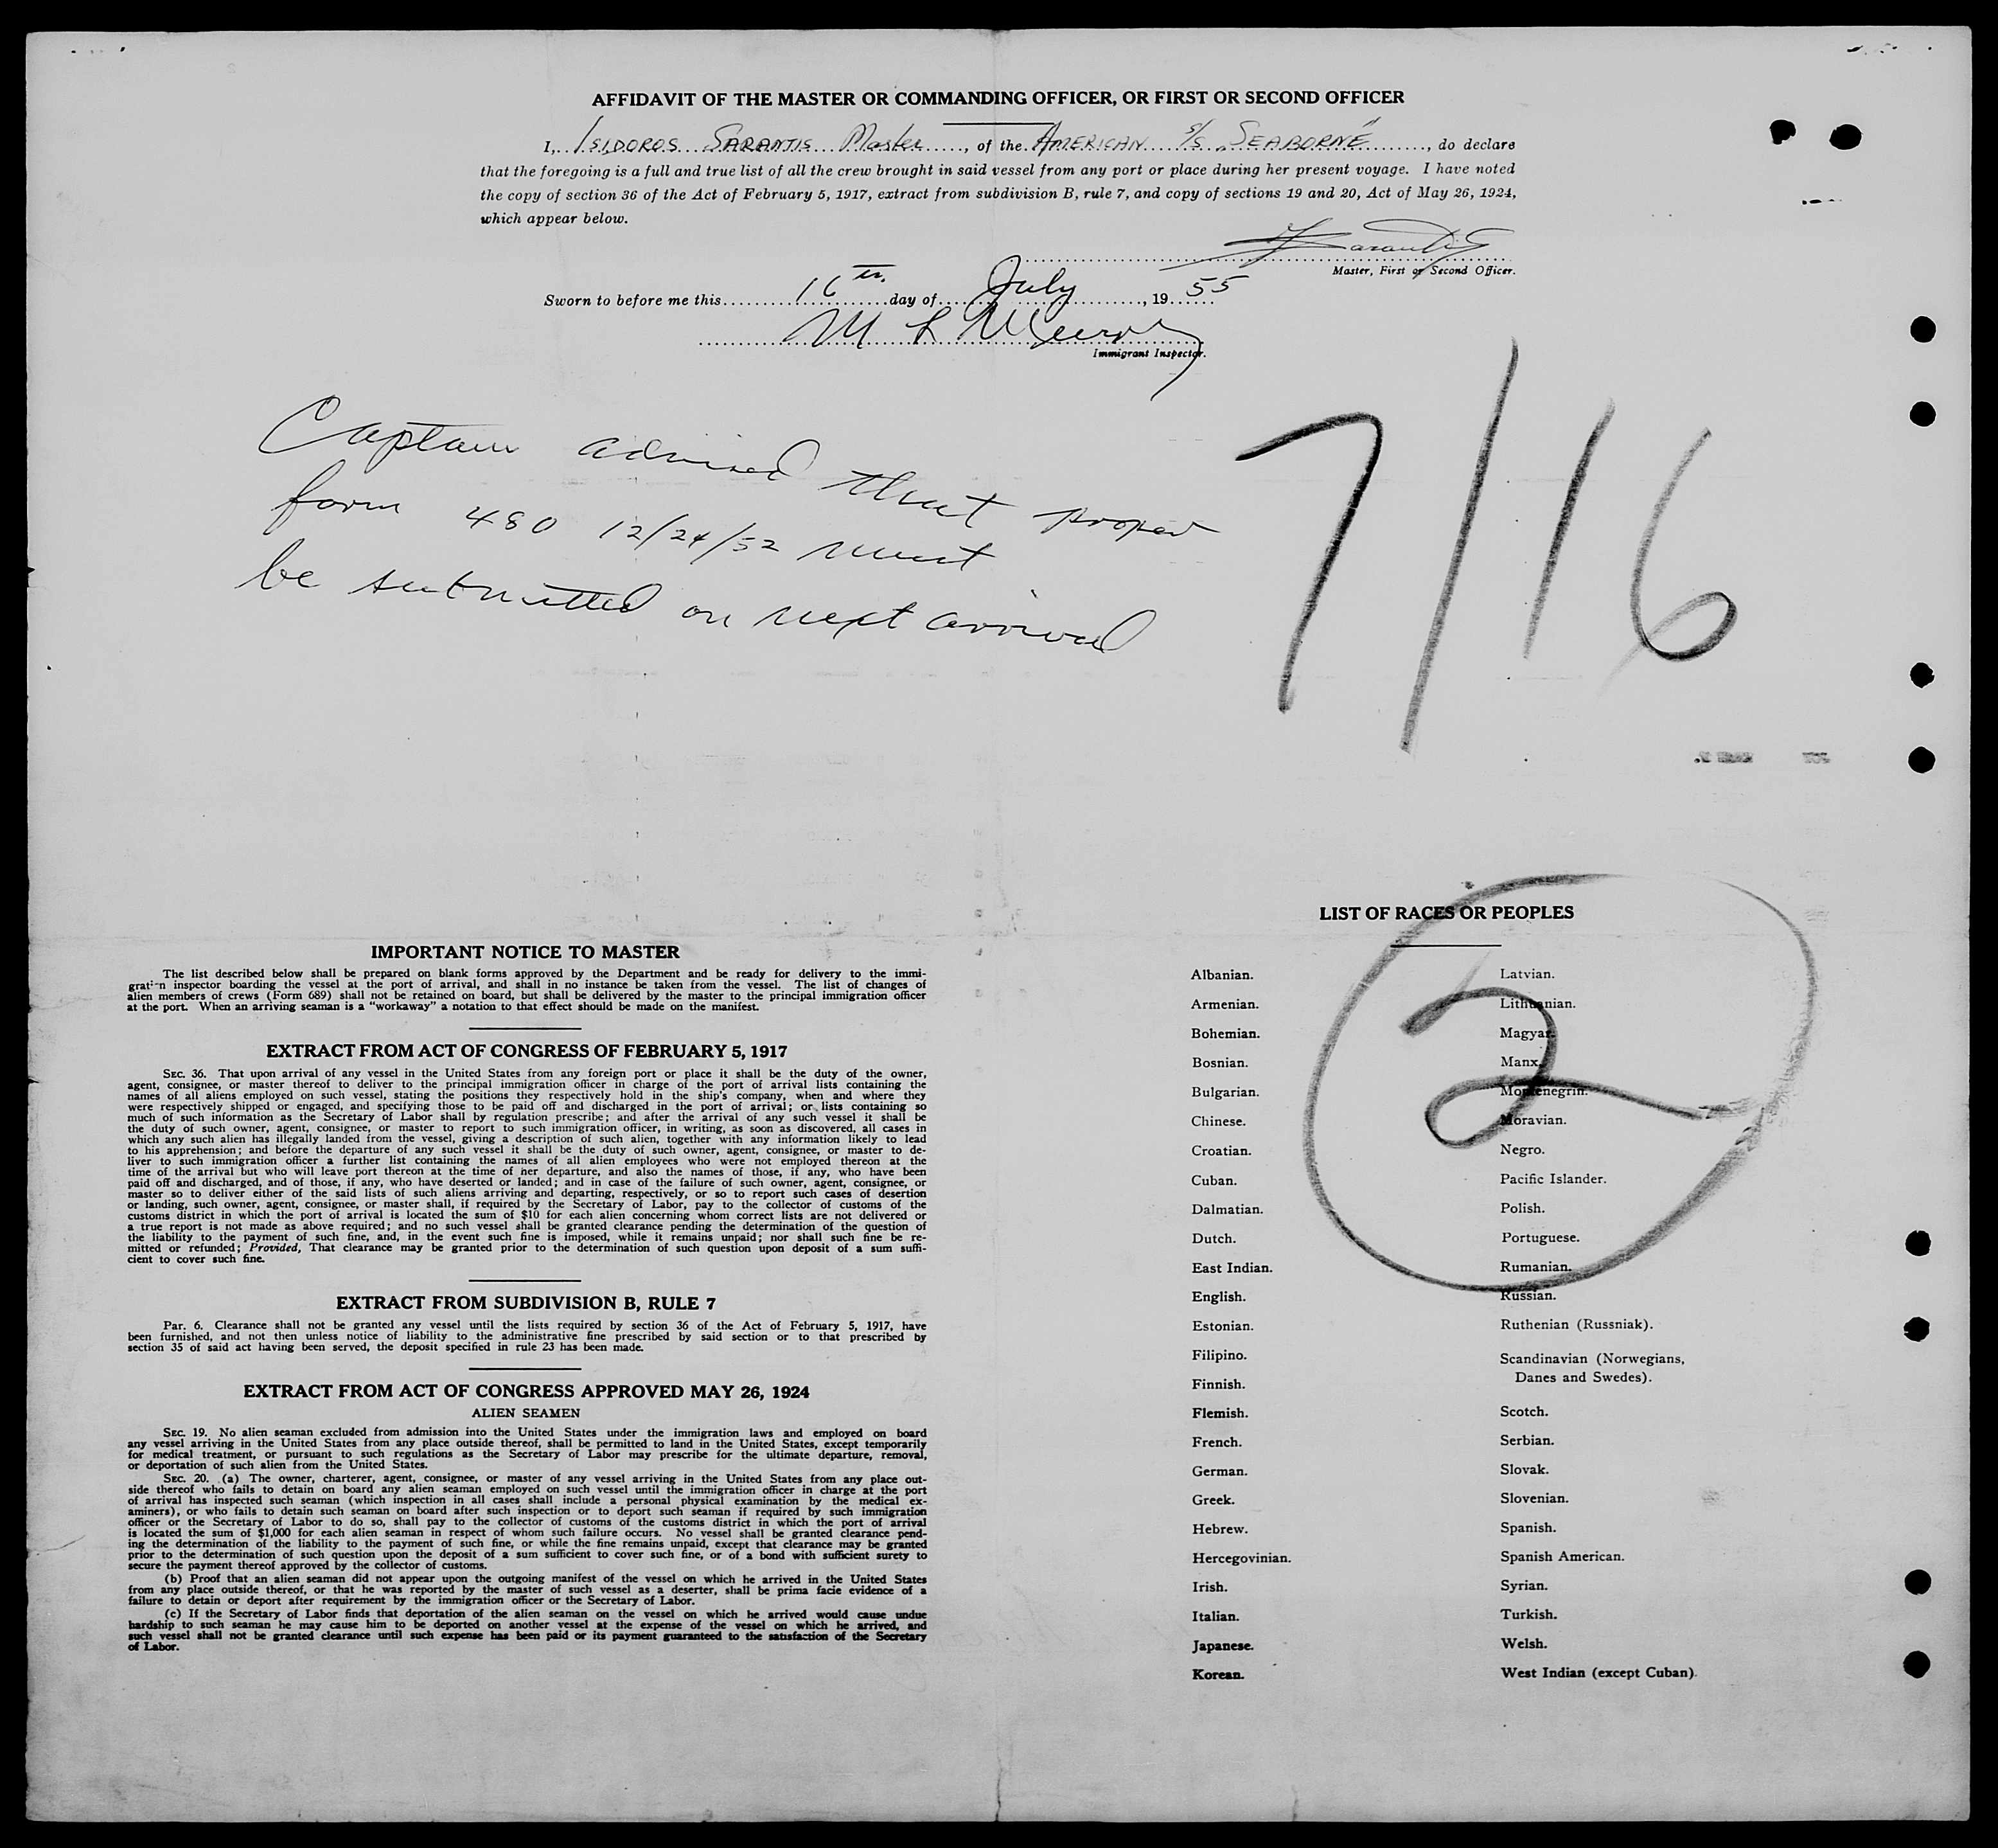 AFFIDAVIT OF THE MASTER OR COMMANDING OFFICER, OR FIRST OR SECOND OFFICER
I, ISIDOROS SARANTIS Master, of the AMERICAN S/S „SEABORNE", do declare
that the foregoing is a full and true list of all the crew brought in said vessel from any port or place during her present voyage. I have noted
the copy of section 36 of the Act of February 5, 1917, extract from subdivision B, rule 7, and copy of sections 19 and 20, Act of May 26, 1924,
which appear below.
Sarantis
Master, First or Second Officer.
Sworn to before me this 16th day of July, 1955
M L
Immigrant Inspector.
Captain advised that proper
form 480 12/24/52 must
be submitted on next arrival
7/16
IMPORTANT NOTICE TO MASTER
The list described below shall be prepared on blank forms approved by the Department and be ready for delivery to the immi-
gration inspector boarding the vessel at the port of arrival, and shall in no instance be taken from the vessel. The list of changes of
alien members of crews (Form 689) shall not be retained on board, but shall be delivered by the master to the principal immigration officer
at the port. When an arriving seaman is a "workaway" a notation to that effect should be made on the manifest.
EXTRACT FROM ACT OF CONGRESS OF FEBRUARY 5, 1917
SEC. 36. That upon arrival of any vessel in the United States from any foreign port or place it shall be the duty of the owner,
agent, consignee, or master thereof to deliver to the principal immigration officer in charge of the port of arrival lists containing the
names of all aliens employed on such vessel, stating the positions they respectively hold in the ship's company, when and where they
were respectively shipped or engaged, and specifying those to be paid off and discharged in the port of arrival; or lists containing so
much of such information as the Secretary of Labor shall by regulation prescribe; and after the arrival of any such vessel it shall be
the duty of such owner, agent, consignee, or master to report to such immigration officer, in writing, as soon as discovered, all cases in
which any such alien has illegally landed from the vessel, giving a description of such alien, together with any information likely to lead
to his apprehension; and before the departure of any such vessel it shall be the duty of such owner, agent, consignee, or master to de-
liver to such immigration officer a further list containing the names of all alien employees who were not employed thereon at the
time of the arrival but who will leave port thereon at the time of her departure, and also the names of those, if any, who have been
paid off and discharged, and of those, if any, who have deserted or landed; and in case of the failure of such owner, agent, consignee, or
master so to deliver either of the said lists of such aliens arriving and departing, respectively, or so to report such cases of desertion
or landing, such owner, agent, consignee, or master shall, if required by the Secretary of Labor, pay to the collector of customs of the
customs district in which the port of arrival is located the sum of $10 for each alien concerning whom correct lists are not delivered or
a true report is not made as above required; and no such vessel shall be granted clearance pending the determination of the question of
the liability to the payment of such fine, and, in the event such fine is imposed, while it remains unpaid; nor shall such fine be re-
mitted or refunded; Provided, That clearance may be granted prior to the determination of such question upon deposit of a sum suffi-
cient to cover such fine.
EXTRACT FROM SUBDIVISION B, RULE 7
Par. 6. Clearance shall not be granted any vessel until the lists required by section 36 of the Act of February 5, 1917, have
been furnished, and not then unless notice of liability to the administrative fine prescribed by said section or to that prescribed by
section 35 of said act having been served, the deposit specified in rule 23 has been made.
EXTRACT FROM ACT OF CONGRESS APPROVED MAY 26, 1924
ALIEN SEAMEN
SEC. 19. No alien seaman excluded from admission into the United States under the immigration laws and employed on board
any vessel arriving in the United States from any place outside thereof, shall be permitted to land in the United States, except temporarily
for medical treatment, or pursuant to such regulations as the Secretary of Labor may prescribe for the ultimate departure, removal,
or deportation of such alien from the United States.
SEC. 20. (a) The owner, charterer, agent, consignee, or master of any vessel arriving in the United States from any place out-
side thereof who fails to detain on board any alien seaman employed on such vessel until the immigration officer in charge at the port
of arrival has inspected such seaman (which inspection in all cases shall include a personal physical examination by the medical ex-
aminers), or who fails to detain such seaman on board after such inspection or to deport such seaman if required by such immigration
officer or the Secretary of Labor to do so, shall pay to the collector of customs of the customs district in which the port of arrival
is located the sum of $1,000 for each alien seaman in respect of whom such failure occurs. No vessel shall be granted clearance pend-
ing the determination of the liability to the payment of such fine, or while the fine remains unpaid, except that clearance may be granted
prior to the determination of such question upon the deposit of a sum sufficient to cover such fine, or of a bond with sufficient surety to
secure the payment thereof approved by the collector of customs.
(b) Proof that an alien seaman did not appear upon the outgoing manifest of the vessel on which he arrived in the United States
from any place outside thereof, or that he was reported by the master of such vessel as a deserter, shall be prima facie evidence of a
failure to detain or deport after requirement by the immigration officer or the Secretary of Labor.
(c) If the Secretary of Labor finds that deportation of the alien seaman on the vessel on which he arrived would cause undue
hardship to such seaman he may cause him to be deported on another vessel at the expense of the vessel on which he arrived, and
such vessel shall not be granted clearance until such expense has been paid or its payment guaranteed to the satisfaction of the Secretary
of Labor.
LIST OF RACES OR PEOPLES
2
Albanian.
Armenian.
Bohemian.
Bosnian.
Bulgarian.
Chinese.
Croatian.
Cuban.
Dalmatian.
Dutch.
East Indian.
English.
Estonian.
Filipino.
Finnish.
Flemish.
French.
German.
Greek.
Hebrew.
Hercegovinian.
Irish.
Italian.
Japanese.
Korean.
Latvian.
Lithuanian.
Magyar.
Manx.
Montenegrin.
Moravian.
Negro.
Pacific Islander.
Polish.
Portuguese.
Rumanian.
Russian.
Ruthenian (Russniak).
Scandinavian (Norwegians,
Danes and Swedes).
Scotch.
Serbian.
Slovak.
Slovenian.
Spanish.
Spanish American.
Syrian.
Turkish.
Welsh.
West Indian (except Cuban).